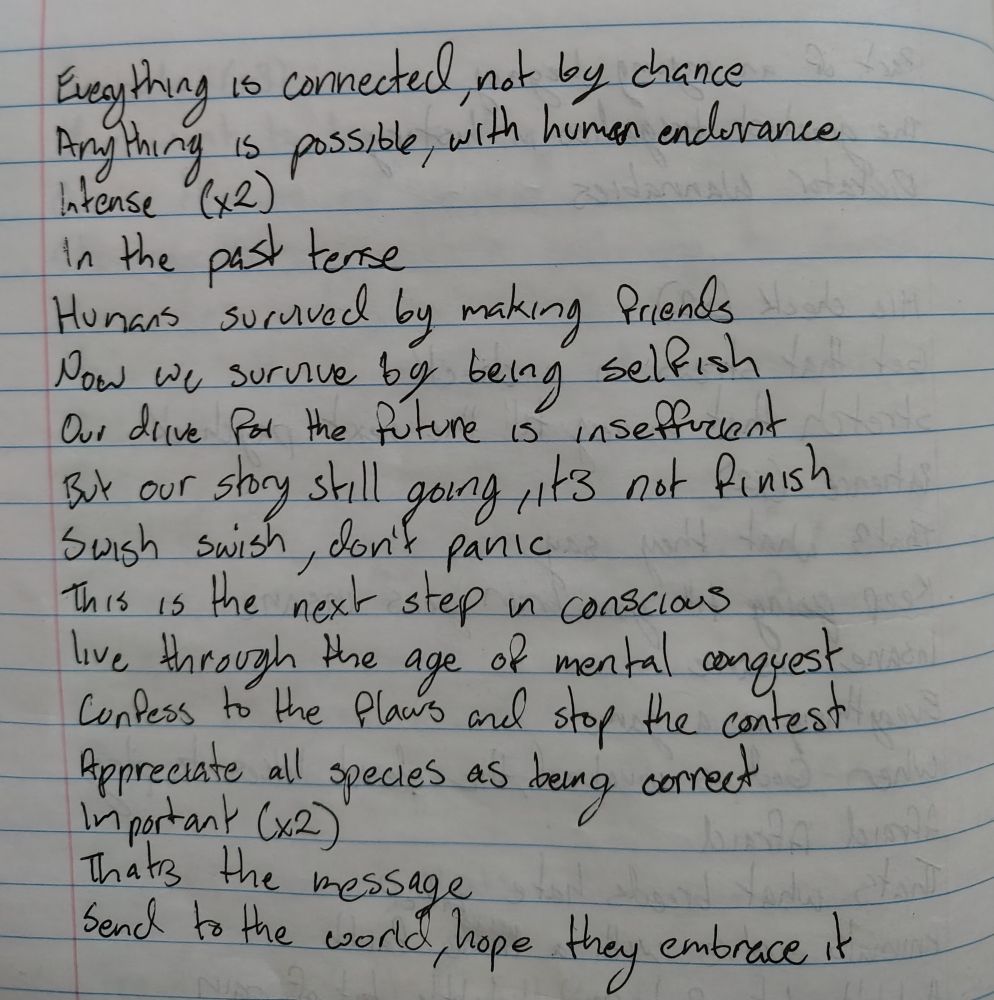 Everything is connected, not by chance
Anything is possible, with human endurance
Intense (x2)
In the past tense
Humans survived by making friends
Now we survive by being selfish
Our drive for the future is insefficient
But our story still going, it's not finish
Swish swish, don't panic
This is the next step in conscious
live through the age of mental conquest
Confess to the flaws and stop the contest
Appreciate all species as being correct
Important (x2)
That's the message
Send to the world, hope they embrace it